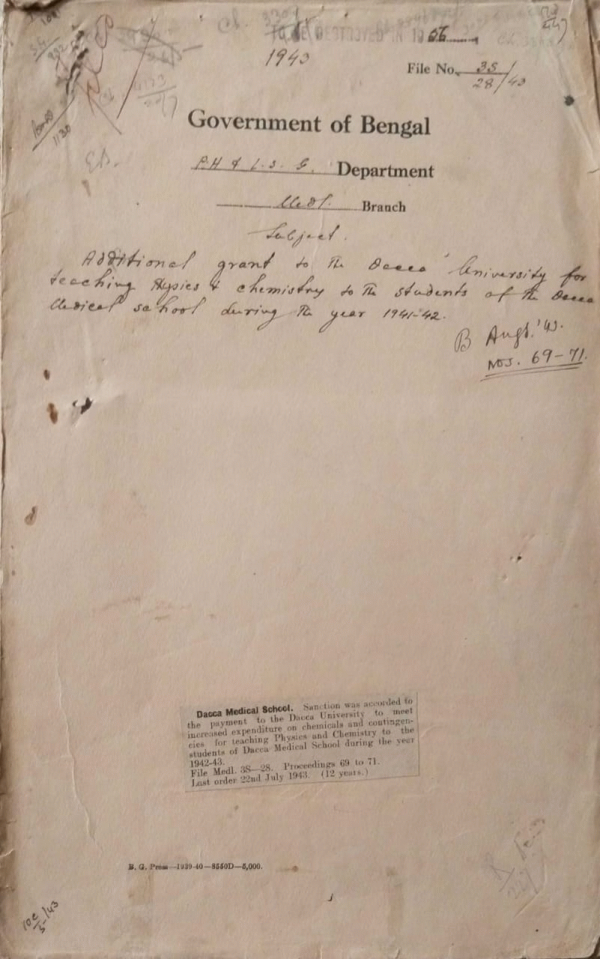 56
1943
File No. 3S/28/43
Government of Bengal
P.H & L.S.G. Department
Medl. Branch
Subject.
Additional grant to the Dacca University for
teaching Physics & chemistry to the students of the Dacca
Medical school during the year 1941-42.
B Augt. '43.
Nos. 69-71.
Dacca Medical School. Sanction was accorded to
the payment to the Dacca University to meet
increased expenditure on chemicals and contingen-
cies for teaching Physics and Chemistry to the
students of Dacca Medical School during the year
1942-43.
File Medl. 3S—28. Proceedings 69 to 71.
Last order 22nd July 1943. (12 years.)
B. G. Press—1939-40—8550D—5,000.